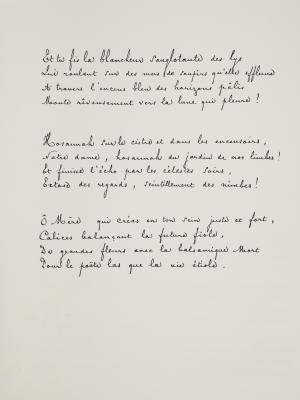 Et tu fis la blancheur sanglotante des lys
Qui roulant sur des mers de soupirs qu'elle effleure
A travers l'encens bleu des horizons pâlis
Monte rêveusement vers la lune qui pleure !
Hosannah sur le cistre et dans les encensoirs,
Notre dame, hosannah du jardin de nos limbes !
Et finisse l'écho par les célestes soirs,
Extase des regards, scintillement des nimbes !
Ô Mère qui créas en ton sein juste et fort,
Calices balançant la future fiole,
De grandes fleurs avec la balsamique Mort
Pour le poëte las que la vie étiole.